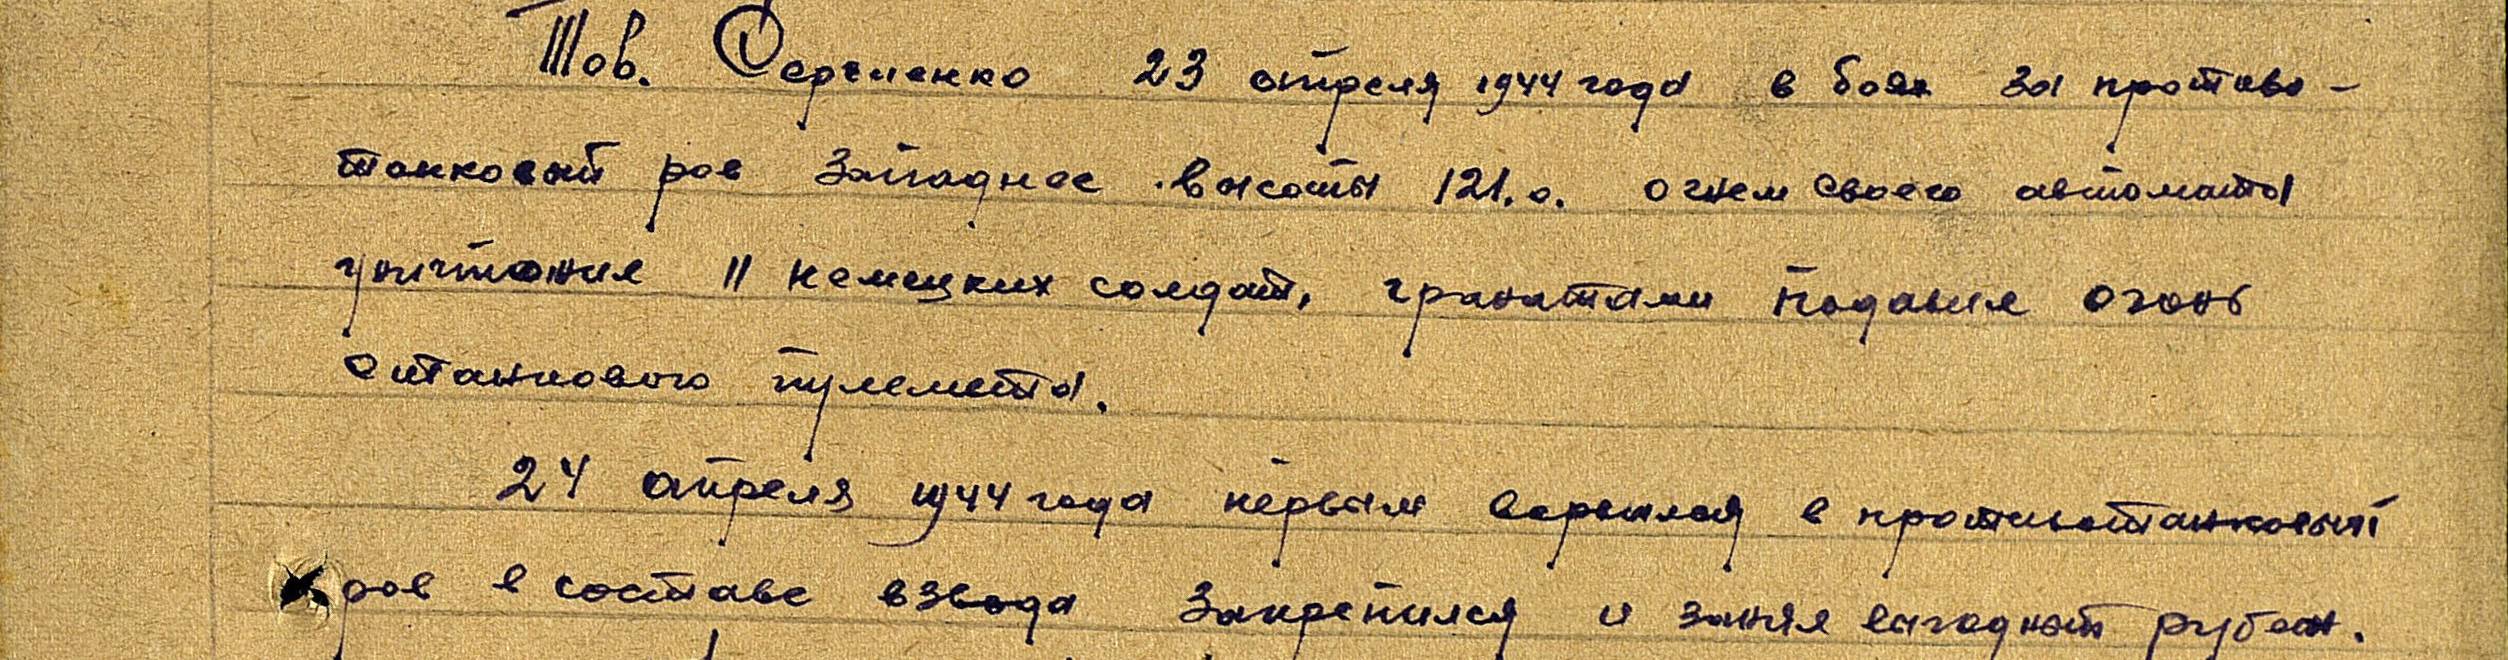 Тов. Сергиенко 23 апреля 1944 года в боях за противо-
танковый ров Западнее высоты 121.0. огнем своего автомата
уничтожил 11 немецких солдат, гранатами подавил огонь
станкового пулемета.
24 апреля 1944 года первым ворвался в противотанковый
ров в составе взвода Закрепился и занял выгодный рубеж.